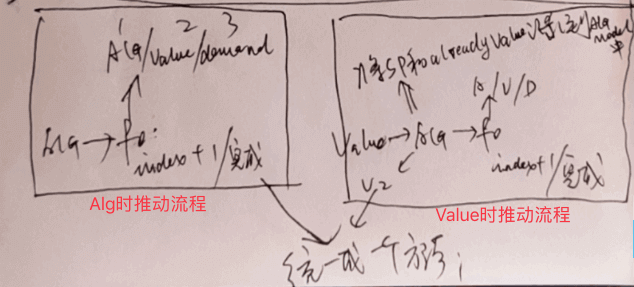 1 2 3
Alg/Value/demand
Alg→fo:
index+1/完成
Alg时推动流程
将SP和alreadyValue记录到Alg
model中
A/V/D
Value→Alg→fo
V2
index+1/完成
Value时推动流程
统一成一个方法;